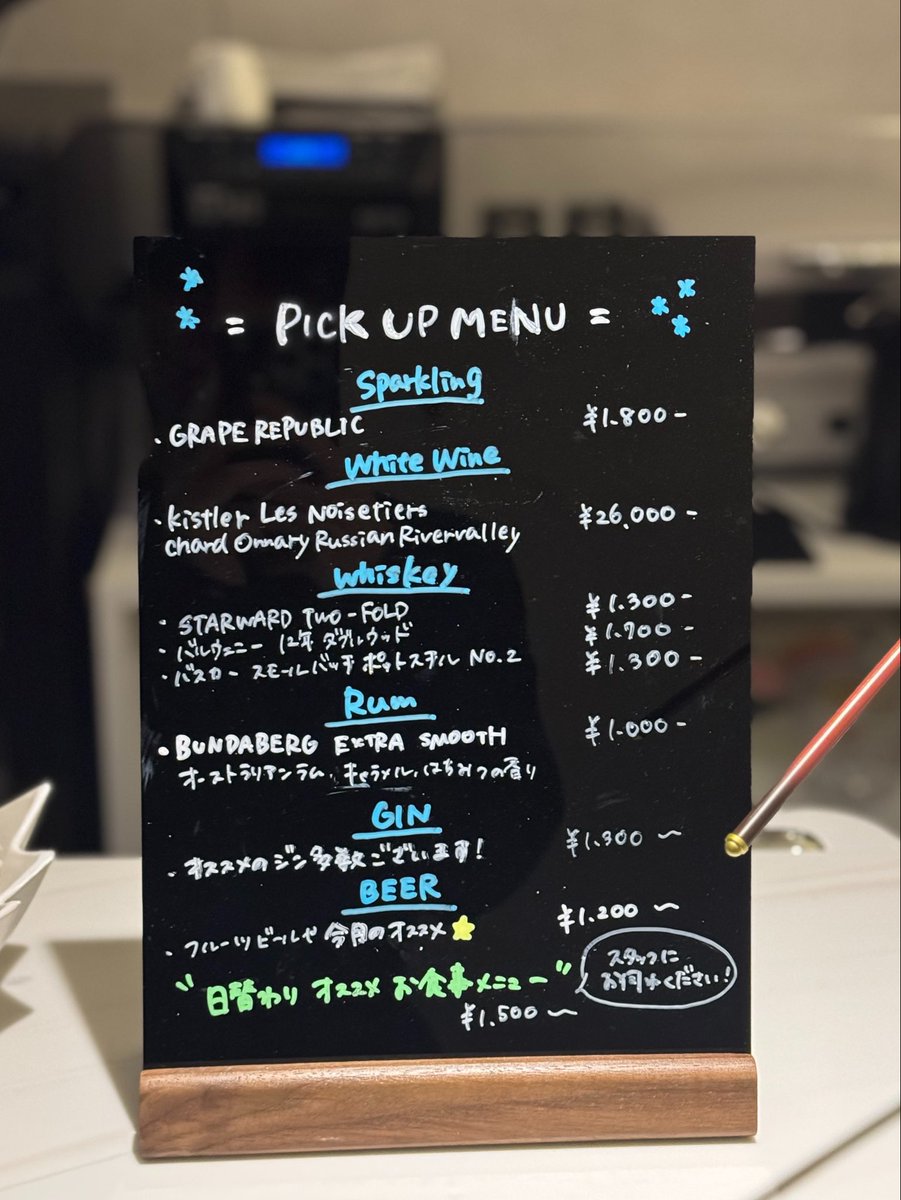 = PICK UP MENU =
Sparkling
・GRAPE REPUBLIC ¥1.800-
White Wine
・Kistler Les Noisetiers ¥26.000-
Chard Onnary Russian Rivervalley
Whiskey
・STARWARD TWO-FOLD ¥1.300-
・バルヴェニー 12年 ダブルウッド ¥1.700-
・バスカー スモールバッチ ポットスチル NO.2 ¥1.300-
Rum
・BUNDABERG EXTRA SMOOTH ¥1.000-
オーストラリアンラム、キャラメル、はちみつの香り
GIN
・オススメのジン多数ございます! ¥1.300〜
BEER
・フルーツビールや今月のオススメ ¥1.200〜
"日替わり オススメ お食事メニュー"
¥1.500〜
スタッフに
お伺いください!